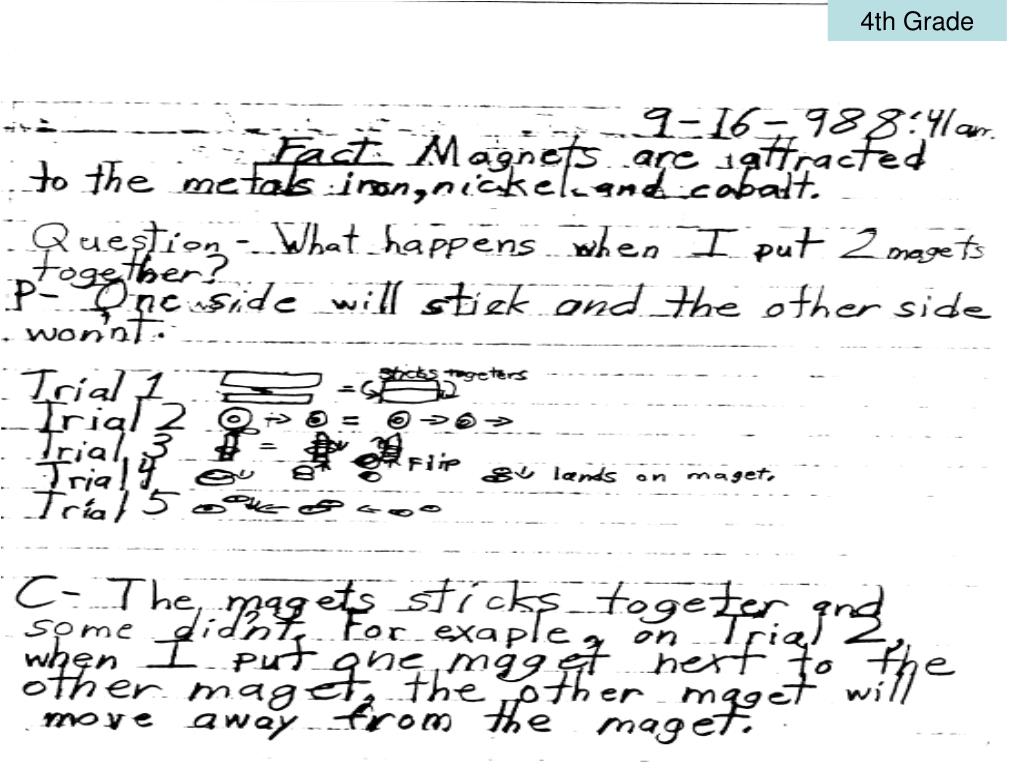 4th Grade
9-16-98 8:41 am.
Fact Magnets are attracted
to the metals iron, nickel and cobalt.
Question - What happens when I put 2 magets
together?
P- One side will stick and the other side
won'nt.
sticks togeters
Trial 1 =
Trial 2 → = → →
Trial 3 =
Trial 4 Flip lands on maget.
Trial 5 ← ←
C- The magets sticks togeter and
some didn't. For exaple, on Trial 2,
when I put one magget next to the
other maget, the other maget will
move away from the maget.